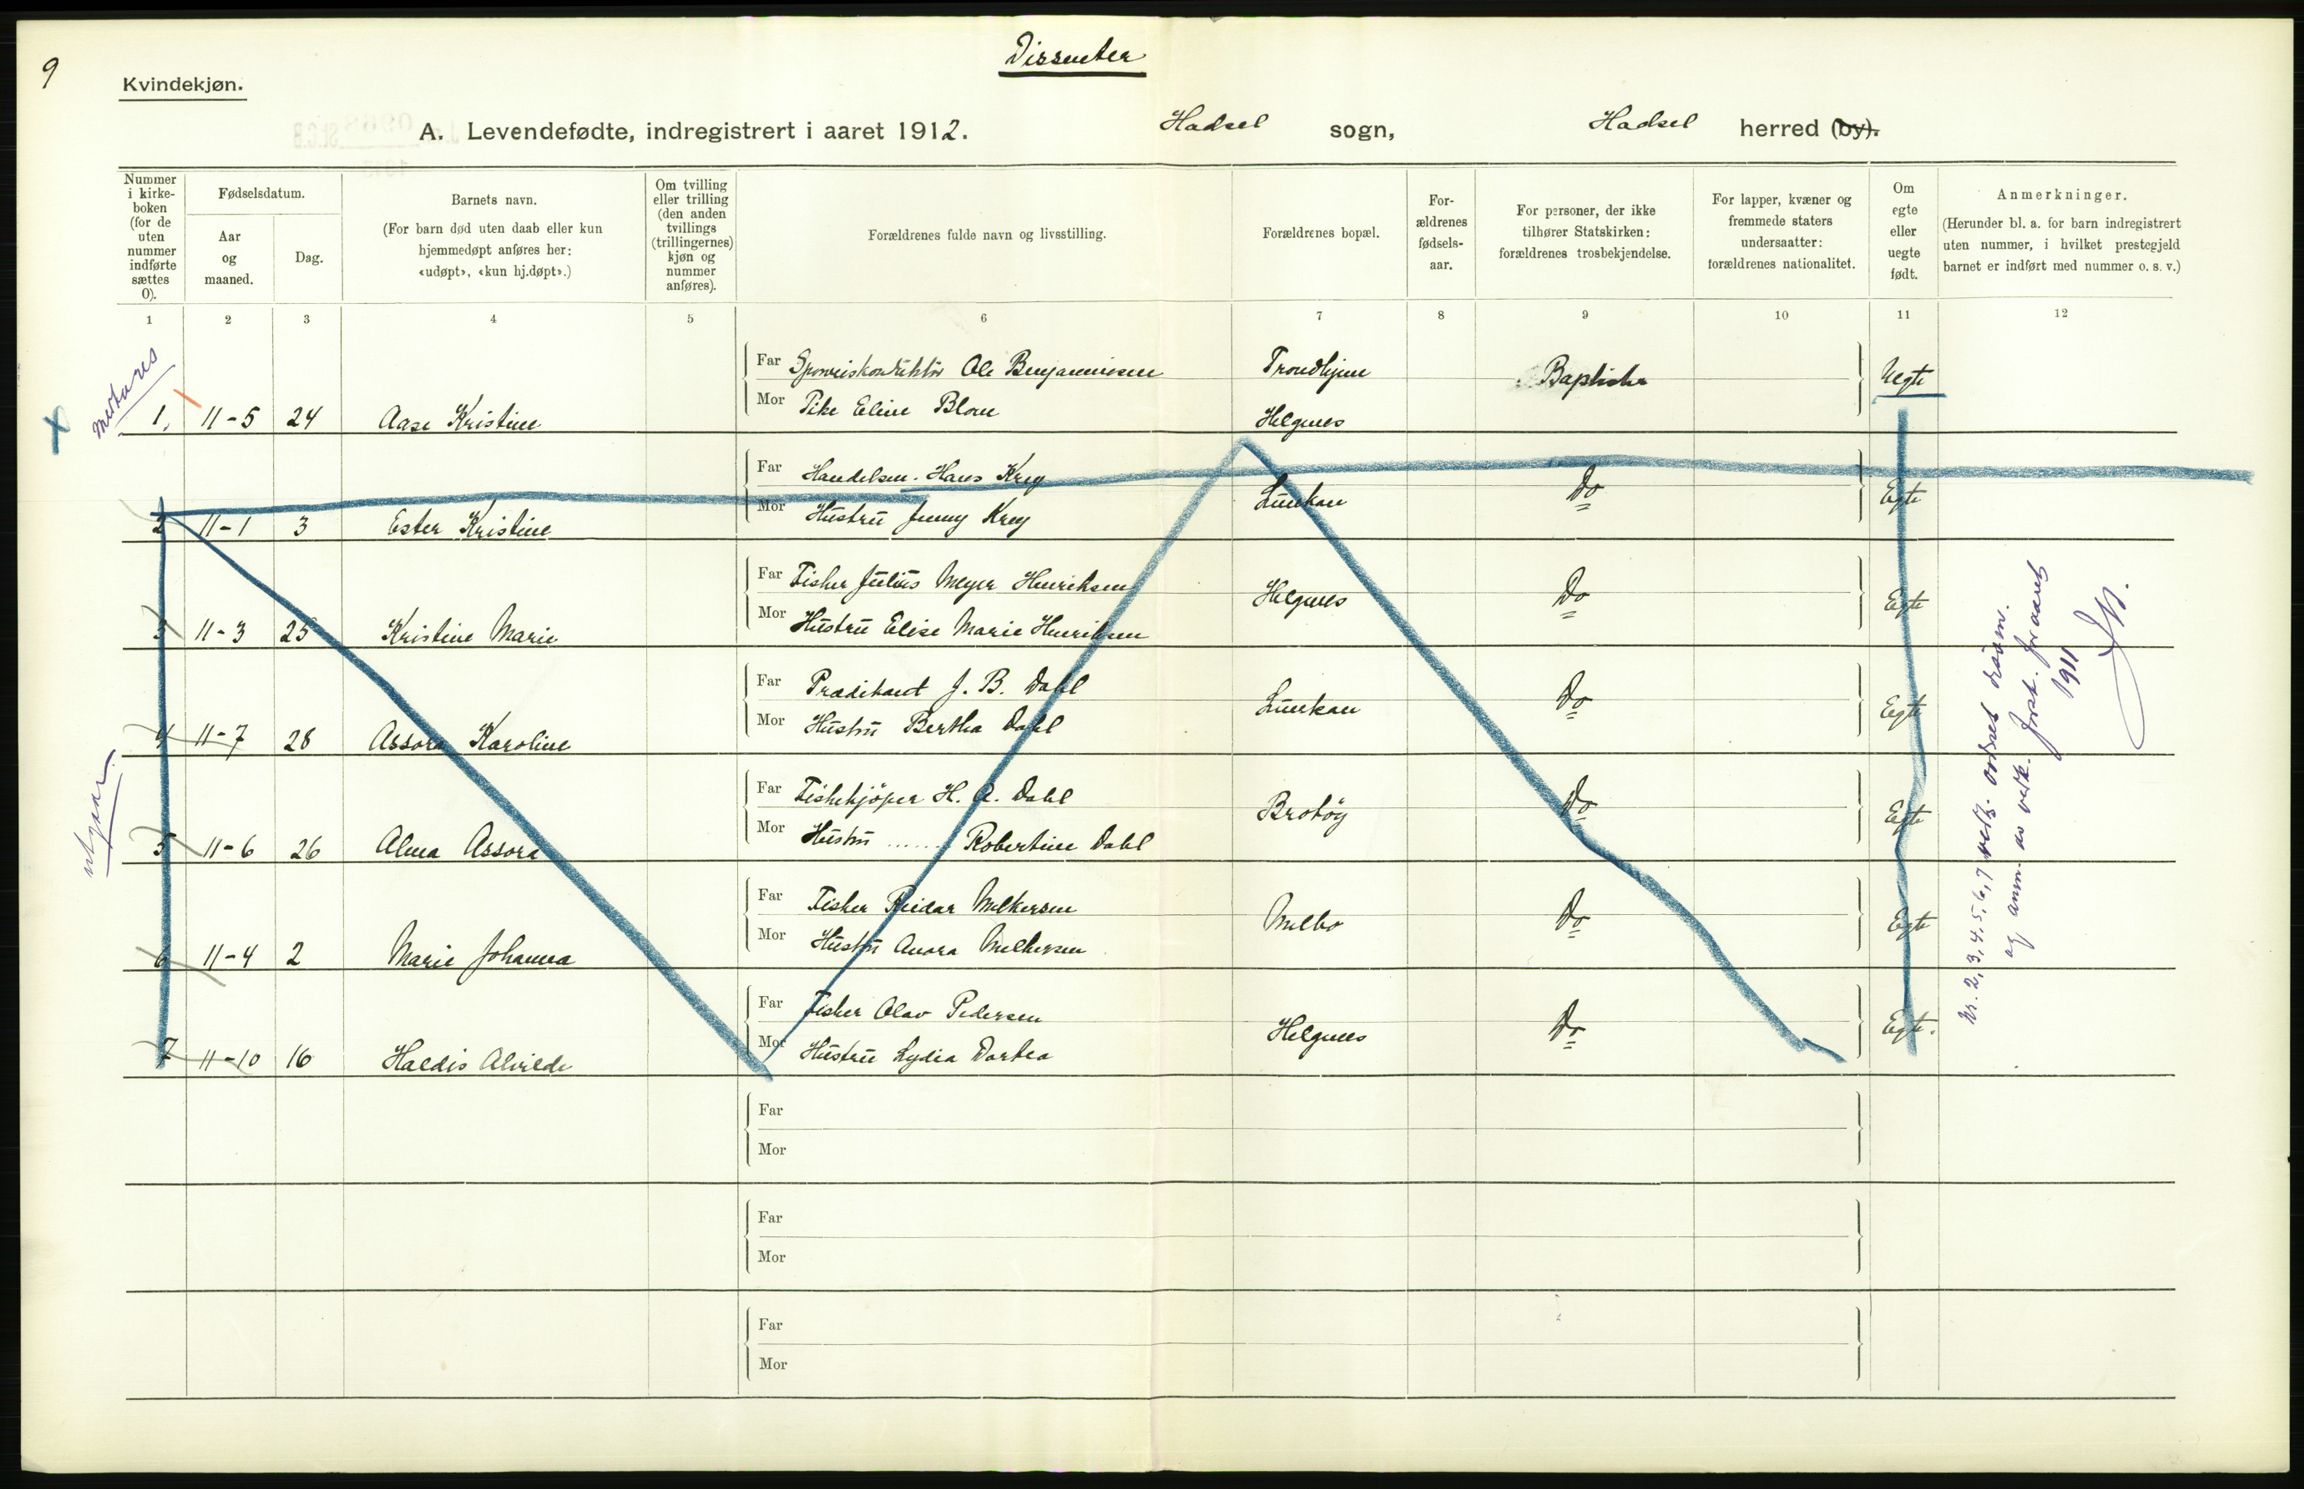 9
Dissenter
Kvindekjøn.
A. Levendefødte, indregistrert i aaret 1912. Hadsel sogn, Hadsel herred (by).
Nummer i kirke-boken (for de uten nummer indførte sættes 0).
Fødselsdatum.
Aar og maaned.
Dag.
Barnets navn.
(For barn død uten daab eller kun hjemmedøpt anføres her: «udøpt», «kun hj.døpt».)
Om tvilling eller trilling (den anden tvillings (trillingernes) kjøn og nummer anføres).
Forældrenes fulde navn og livsstilling.
Forældrenes bopæl.
For-ældrenes fødsels-aar.
For personer, der ikke tilhører Statskirken: forældrenes trosbekjendelse.
For lapper, kvæner og fremmede staters undersaatter: forældrenes nationalitet.
Om egte eller uegte født.
Anmerkninger.
(Herunder bl. a. for barn indregistrert uten nummer, i hvilket prestegjeld barnet er indført med nummer o. s. v.)
1 2 3 4 5 6 7 8 9 10 11 12
medtares
Far Sporveiskonduktör Ole Benjaminsen Trondhjem Baptister Uegte
1. 11-5 24 Aase Kristine Mor Pike Eline Blom Helgnes
Far Handelsm. Hans Krey
2 11-1 3 Ester Kristine Mor Hustru Jenny Krey Lunkan Do Egte
Far Fisker Julius Meyer Henriksen
3 11-3 25 Kristine Marie Mor Hustru Elise Marie Henriksen Helgnes Do Egte
Far Prædikant J. B. Dahl
4 11-7 28 Assora Karoline Mor Hustru Bertha Dahl Lunkan Do Egte
utgaar.
Far Fiskekjöper H. A. Dahl
5 11-6 26 Alma Assora Mor Hustru ...... Robertine Dahl Brotöy Do Egte
Far Fisker Reidar Melkersen
6 11-4 2 Marie Johanna Mor Hustru Anora Melkersen Melbo Do Egte
Far Fisker Olav Pedersen
7 11-10 16 Haldis Alvilde Mor Hustru Lydia Dortea Helgnes Do Egte.
Nr. 2, 3, 4, 5, 6, 7
1911
Far
Mor
Far
Mor
Far
Mor